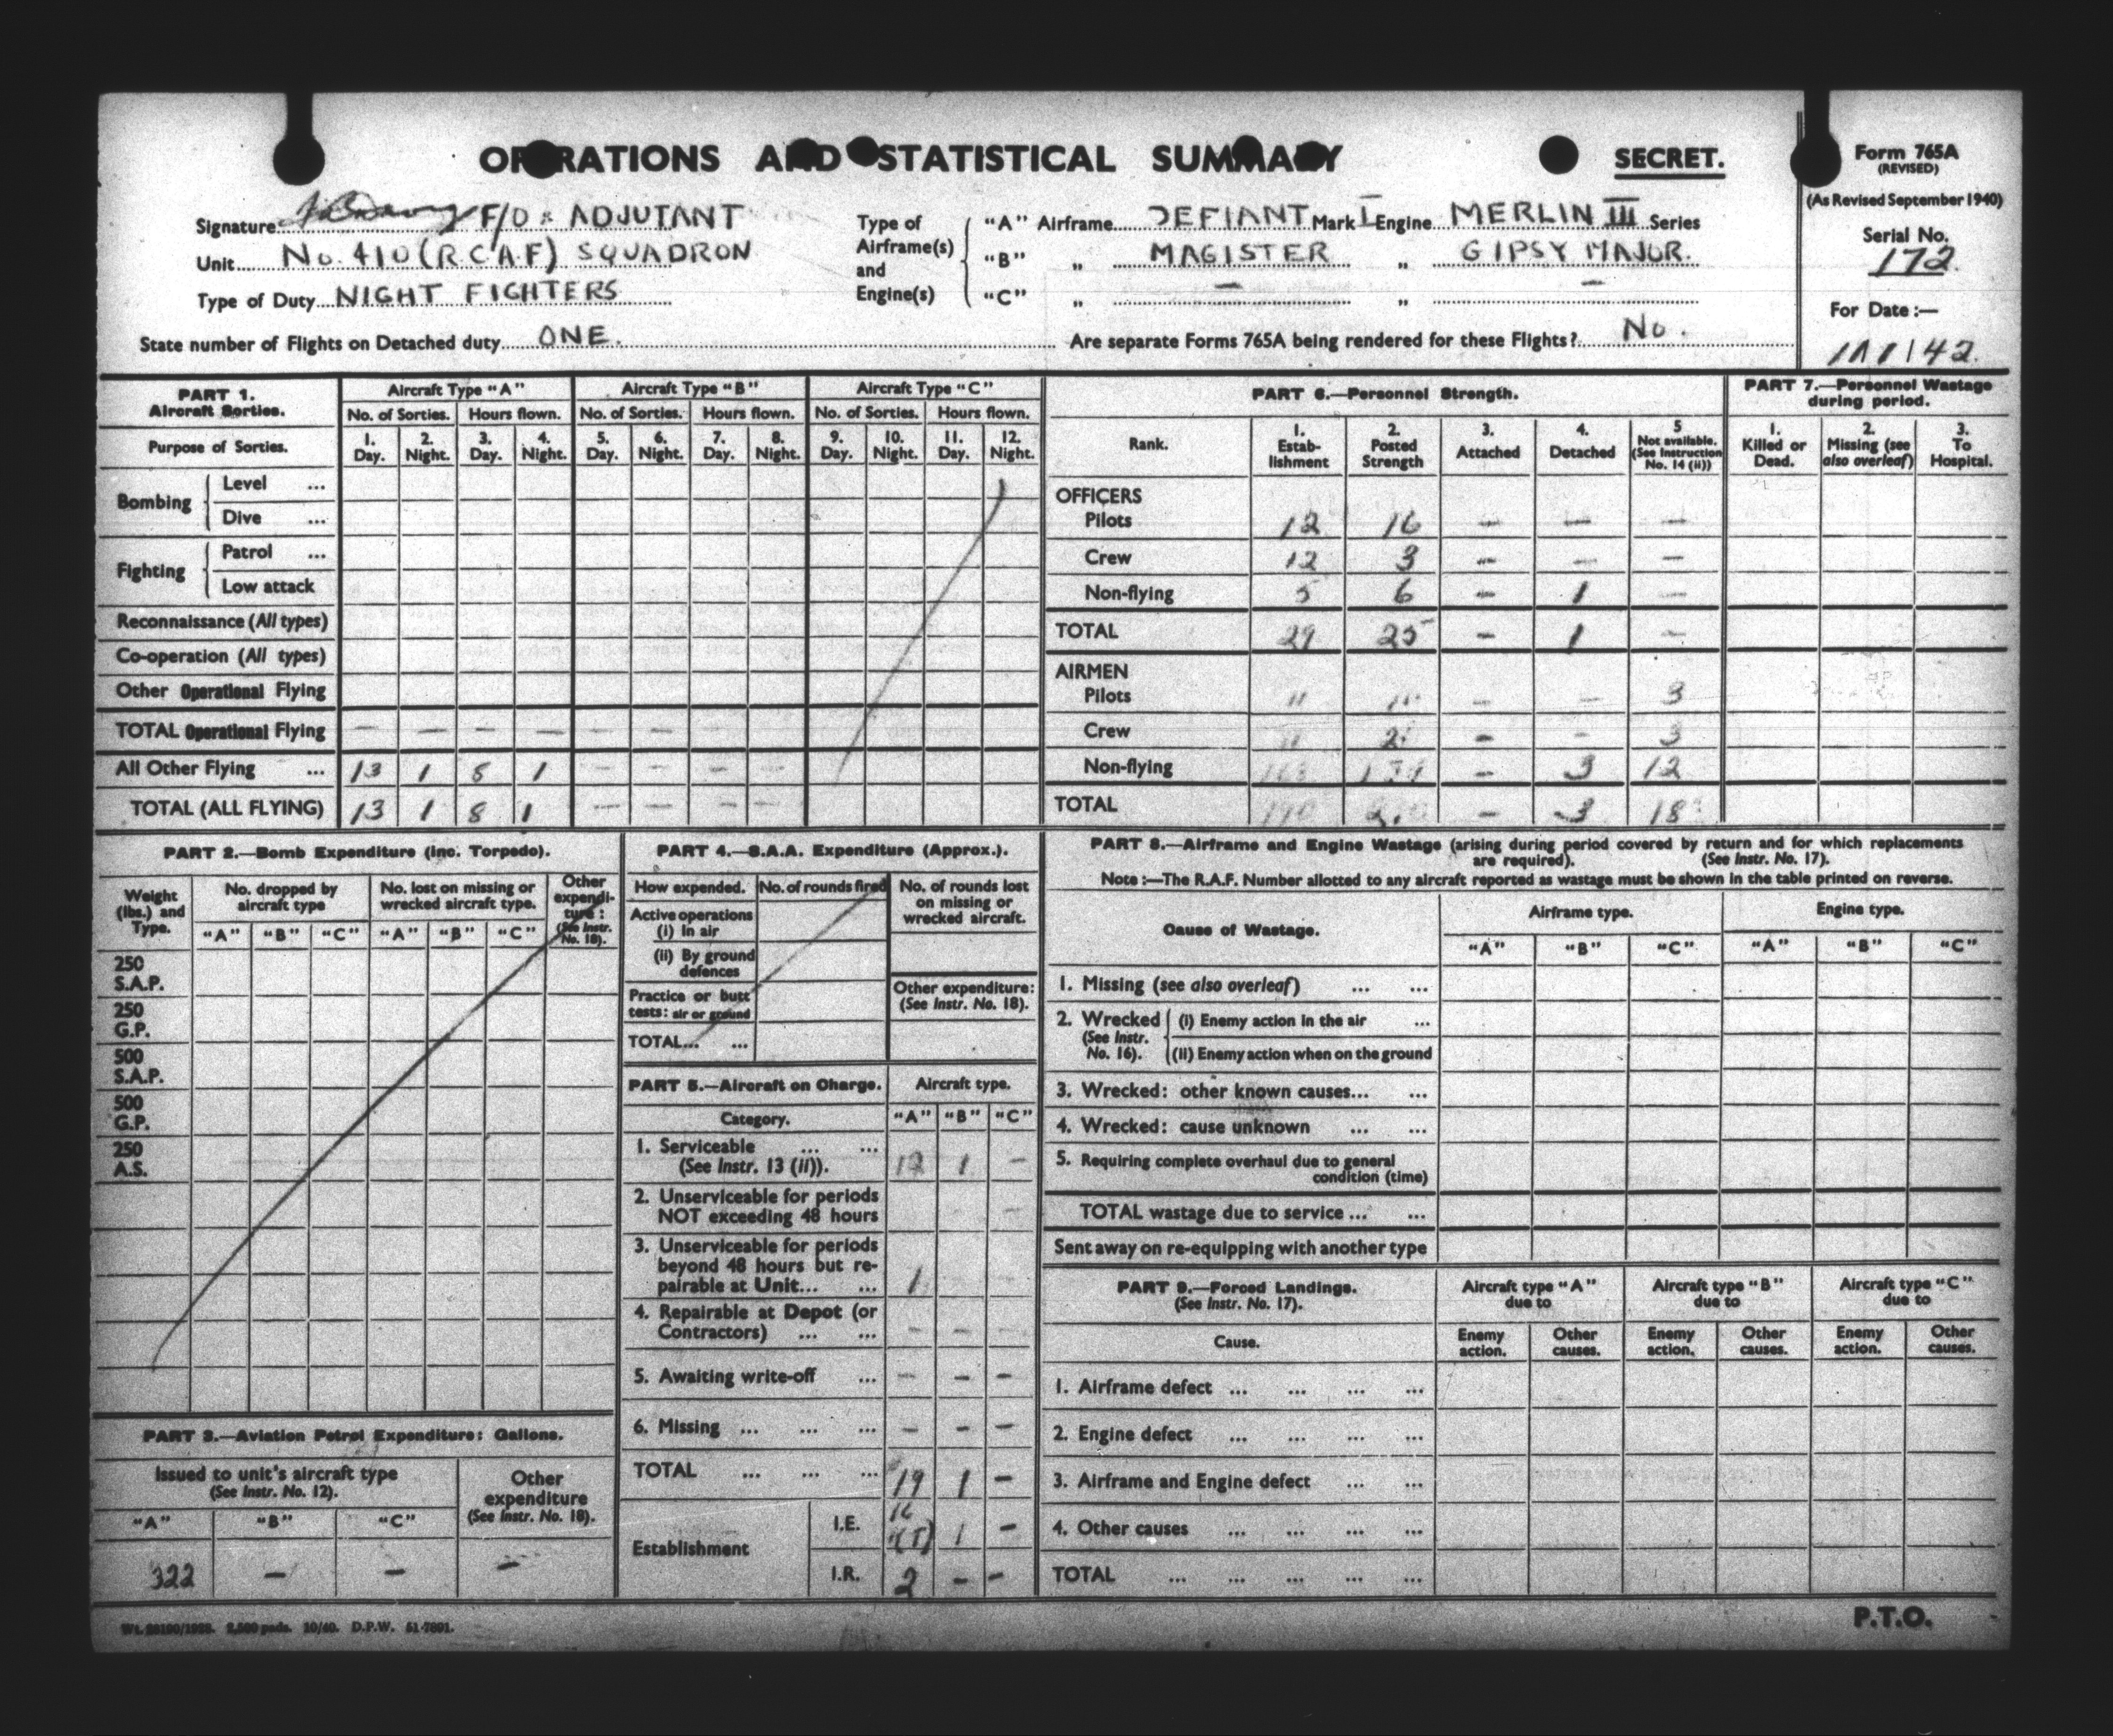 OPERATIONS AND STATISTICAL SUMMARY
SECRET.
Form 765A
(REVISED)
(As Revised September 1940)
Serial No.
172.
For Date:—
Signature F/O = ADJUTANT
Unit No. 410 (R.C.A.F) SQUADRON
Type of Duty NIGHT FIGHTERS
Type of Airframe(s) and Engine(s)
"A" Airframe DEFIANT Mark I Engine MERLIN III Series
"B" „ MAGISTER „ GIPSY MAJOR.
"C" „ — „ —
State number of Flights on Detached duty ONE.
Are separate Forms 765A being rendered for these Flights? No.
PART 1.
Aircraft Sorties.
Aircraft Type "A" Aircraft Type "B" Aircraft Type "C"
No. of Sorties. Hours flown. No. of Sorties. Hours flown. No. of Sorties. Hours flown.
Purpose of Sorties.
1. Day. 2. Night. 3. Day. 4. Night. 5. Day. 6. Night. 7. Day. 8. Night. 9. Day. 10. Night. 11. Day. 12. Night.
Bombing
Level ...
Dive ...
Fighting
Patrol ...
Low attack
Reconnaissance (All types)
Co-operation (All types)
Other Operational Flying
TOTAL Operational Flying — — — — — —
All Other Flying ... 13 1 8 1 — — — —
TOTAL (ALL FLYING) 13 1 8 1 — — — —
PART 6.—Personnel Strength.
Rank.
1. Estab-lishment
2. Posted Strength
3. Attached
4. Detached
5 Not available. (See Instruction No. 14 (ii))
OFFICERS
Pilots 12 16 — — —
Crew 12 3 — — —
Non-flying 5 6 — 1 —
TOTAL 29 25 — 1 —
AIRMEN
Pilots 11 — — 3
Crew — — 3
Non-flying — 3 12
TOTAL — 3 18
PART 7.—Personnel Wastage
during period.
1. Killed or Dead.
2. Missing (see also overleaf)
3. To Hospital.
PART 2.—Bomb Expenditure (inc. Torpedo).
Weight (lbs.) and Type.
No. dropped by aircraft type
No. lost on missing or wrecked aircraft type.
Other expendi-ture: (See Instr. No. 18).
"A" "B" "C" "A" "B" "C"
250 S.A.P.
250 G.P.
500 S.A.P.
500 G.P.
250 A.S.
PART 3.—Aviation Petrol Expenditure: Gallons.
Issued to unit's aircraft type
(See Instr. No. 12).
Other expenditure (See Instr. No. 18).
"A" "B" "C"
322 — — —
PART 4.—S.A.A. Expenditure (Approx.).
How expended. No. of rounds fired No. of rounds lost on missing or wrecked aircraft.
Active operations
(i) In air
(ii) By ground defences
Practice or butt tests: air or ground
Other expenditure: (See Instr. No. 18).
TOTAL... ...
PART 5.—Aircraft on Charge. Aircraft type.
Category. "A" "B" "C"
1. Serviceable ... ...
(See Instr. 13 (ii)). 1 —
2. Unserviceable for periods
NOT exceeding 48 hours
3. Unserviceable for periods
beyond 48 hours but re-
pairable at Unit... ... 1
4. Repairable at Depot (or
Contractors) ... ... — — —
5. Awaiting write-off ... — — —
6. Missing ... ... ... — — —
TOTAL ... ... ... 19 1 —
Establishment
I.E. 16 1 —
I.R. 2 — —
PART 8.—Airframe and Engine Wastage (arising during period covered by return and for which replacements
are required). (See Instr. No. 17).
Note:—The R.A.F. Number allotted to any aircraft reported as wastage must be shown in the table printed on reverse.
Cause of Wastage.
Airframe type. Engine type.
"A" "B" "C" "A" "B" "C"
1. Missing (see also overleaf) ... ...
2. Wrecked (See Instr. No. 16).
(i) Enemy action in the air ...
(ii) Enemy action when on the ground
3. Wrecked: other known causes... ...
4. Wrecked: cause unknown ... ...
5. Requiring complete overhaul due to general
condition (time)
TOTAL wastage due to service ... ...
Sent away on re-equipping with another type
PART 9.—Forced Landings.
(See Instr. No. 17).
Aircraft type "A" due to Aircraft type "B" due to Aircraft type "C" due to
Cause.
Enemy action. Other causes. Enemy action. Other causes. Enemy action. Other causes.
1. Airframe defect ... ... ... ...
2. Engine defect ... ... ... ...
3. Airframe and Engine defect ... ...
4. Other causes ... ... ... ...
TOTAL ... ... ... ... ...
Wt. 26190/1928. 2,500 pads. 10/40. D.P.W. 51-7891.
P.T.O.